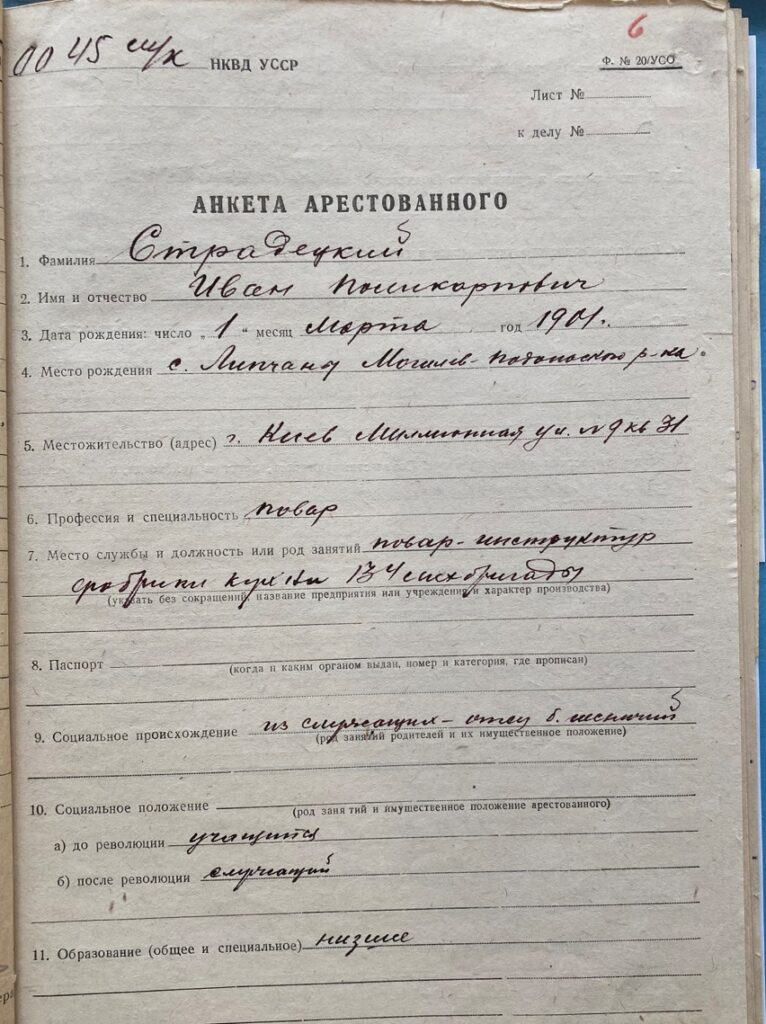 6
00 45 НКВД УССР
Ф. № 20/УСО
Лист №
к делу №
АНКЕТА АРЕСТОВАННОГО
1. Фамилия Страдецкий
2. Имя и отчество Иван Поликарпович
3. Дата рождения: число „ 1 “ месяц марта год 1901 г.
4. Место рождения с. Липчаны Могилев-Подольского р-на.
5. Местожительство (адрес) г. Киев Миллионная ул. № 9 кв 31
6. Профессия и специальность повар
7. Место службы и должность или род занятий повар-инструктур
фабрики кухни 134
(указать без сокращений, название предприятия или учреждения и характер производства)
8. Паспорт
(когда и каким органом выдан, номер и категория, где прописан)
9. Социальное происхождение из служащих – отец б. лесничий
(род занятий родителей и их имущественное положение)
10. Социальное положение
(род занятий и имущественное положение арестованного)
а) до революции учащийся
б) после революции служащий
11. Образование (общее и специальное) низшее